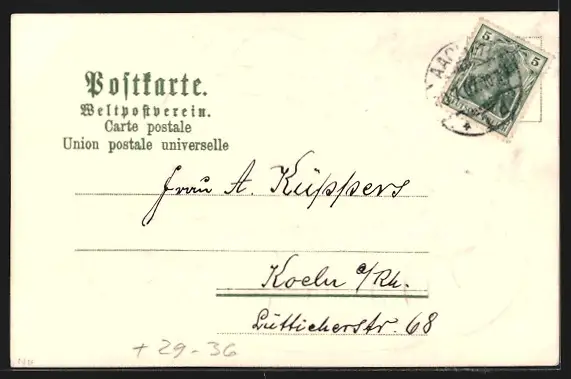 Postkarte.
Weltpostverein.
Carte postale
Union postale universelle
5 5
AACHEN
Frau A. Küppers
Koeln a/Rh.
Lütticherstr. 68
+ 29-36